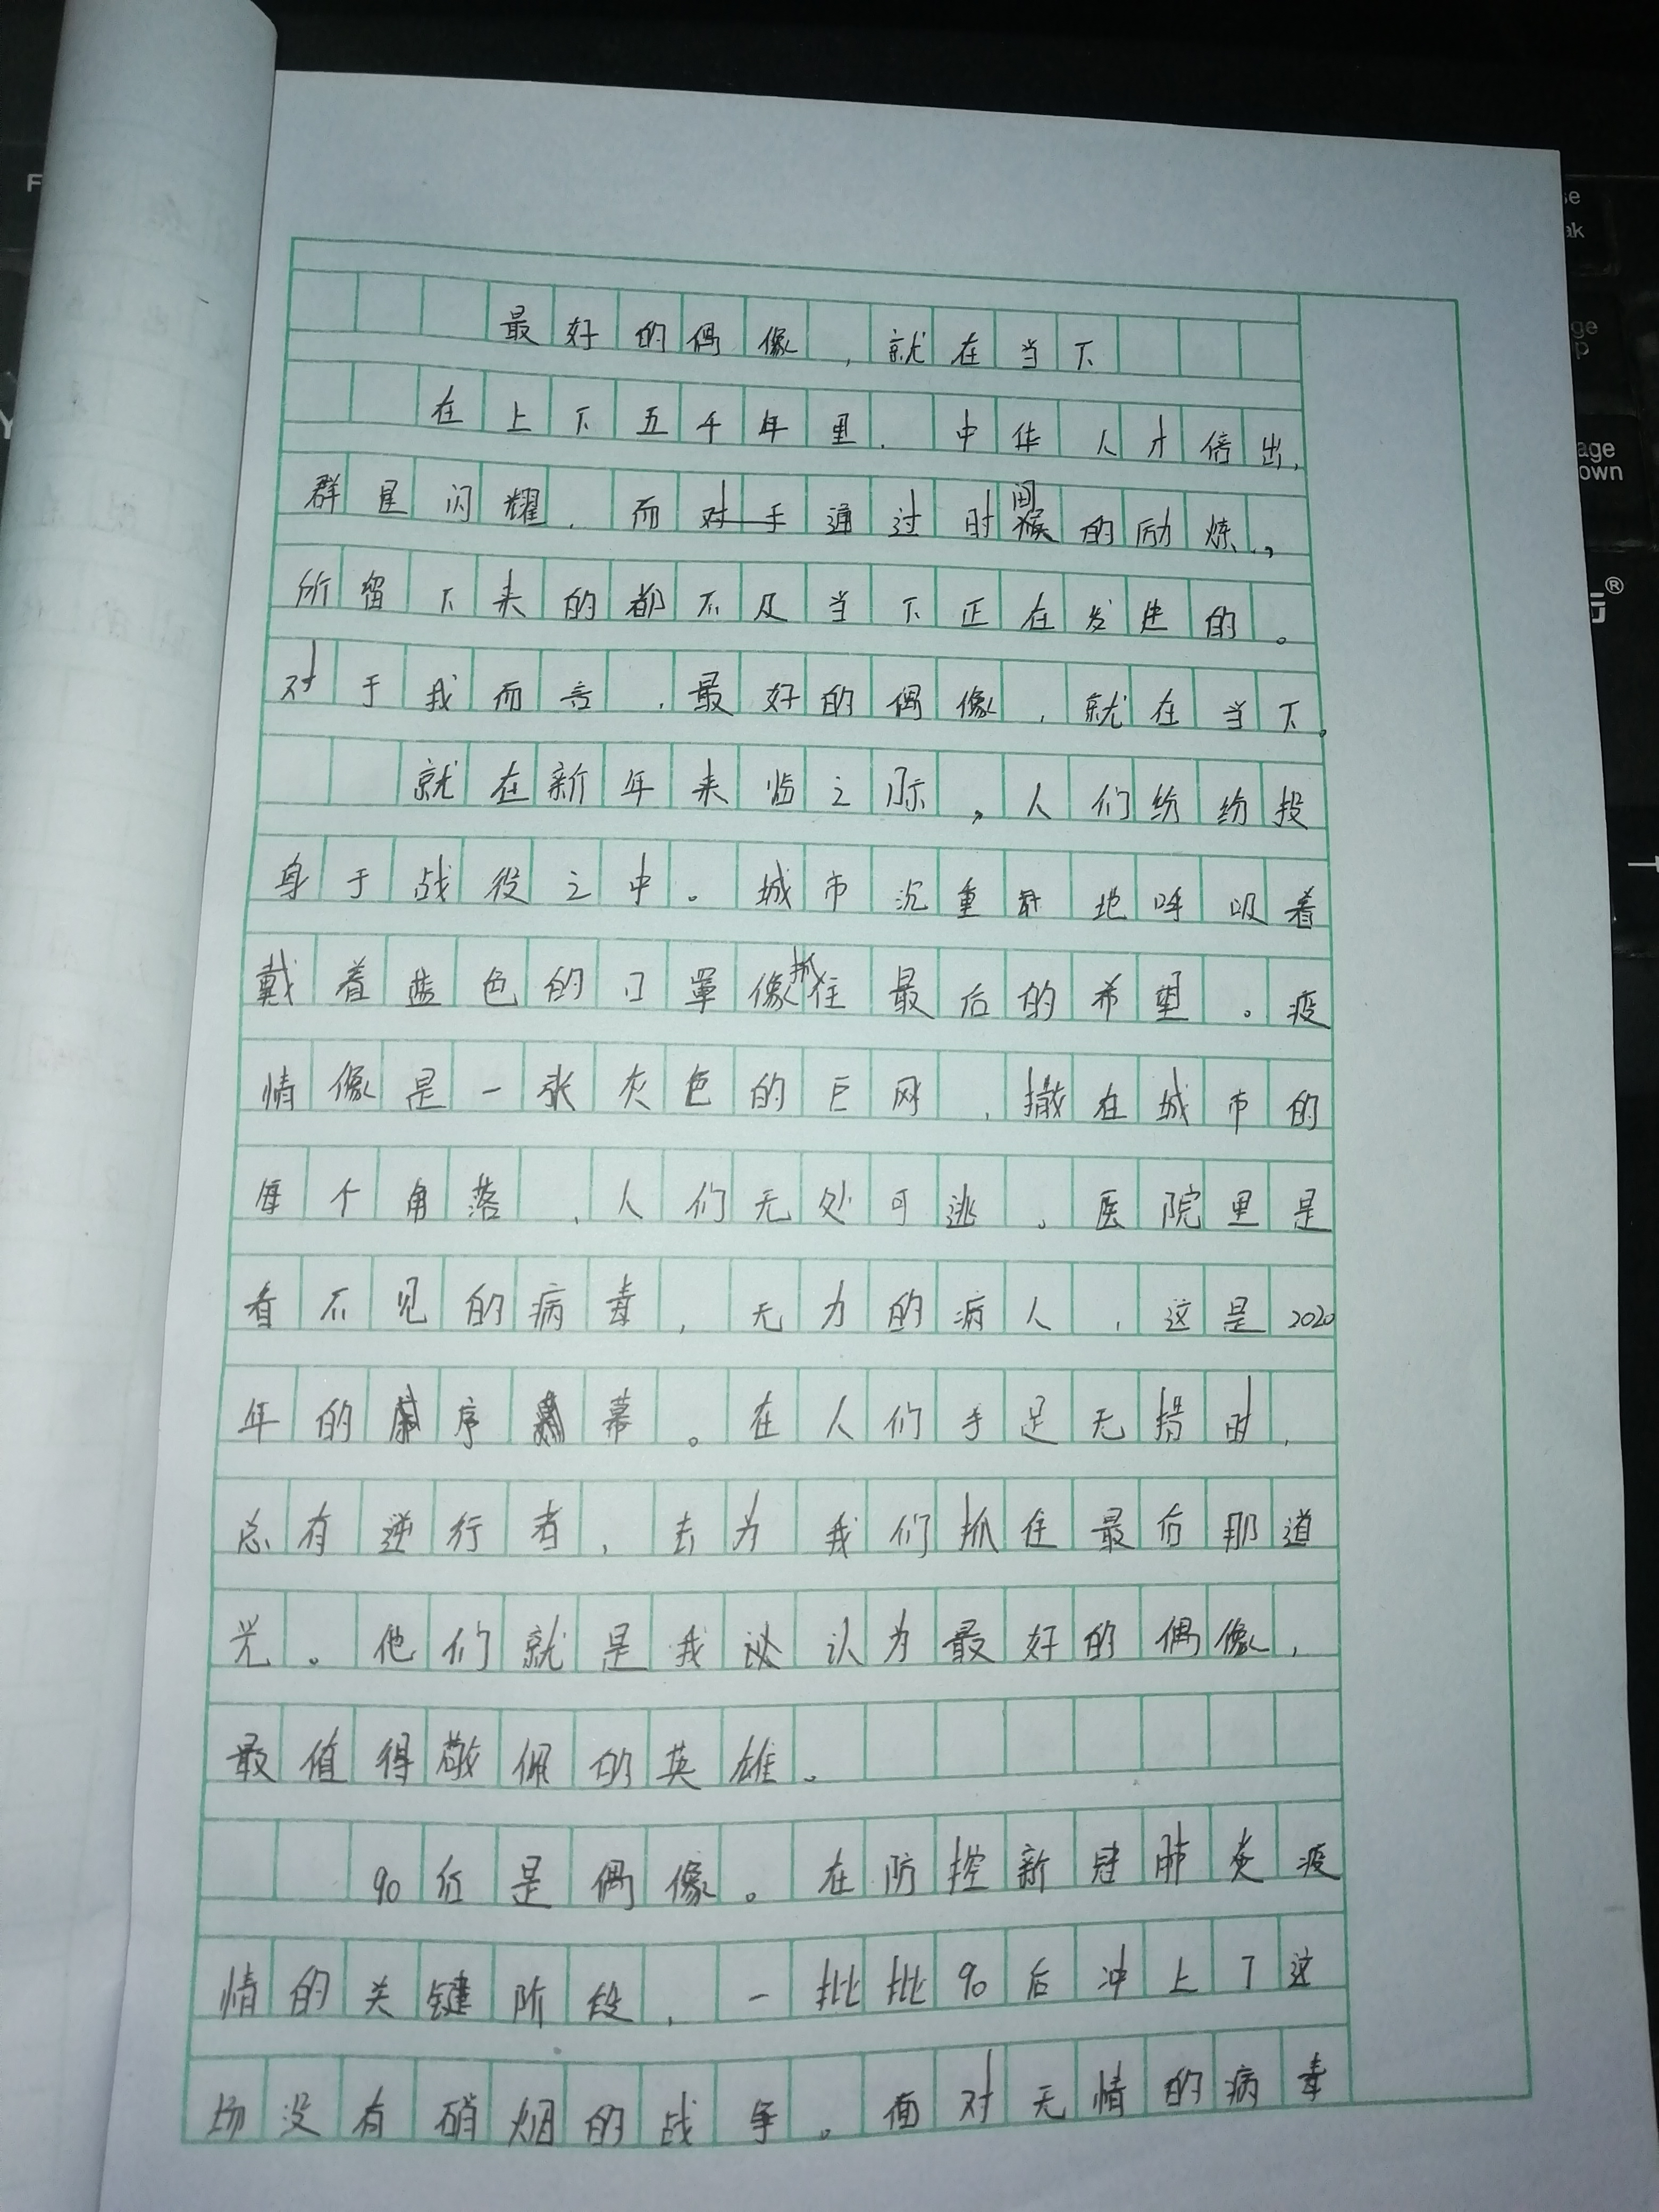 最好的偶像，就在当下
在上下五千年里，中华人才倍出，
群星闪耀，而通过时间的励炼，
所留下来的都不及当下正在发生的。
对于我而言，最好的偶像，就在当下。
就在新年来临之际，人们纷纷投
身于战役之中。城市沉重地呼吸着
戴着蓝色的口罩像抓住最后的希望。疫
情像是一张灰色的巨网，撒在城市的
每个角落，人们无处可逃。医院里是
看不见的病毒，无力的病人，这是2020
年的序幕。在人们手足无措时，
总有逆行者，去为我们抓住最后那道
光。他们就是我认为最好的偶像，
最值得敬佩的英雄。
90后是偶像。在防控新冠肺炎疫
情的关键阶段，一批批90后冲上了这
场没有硝烟的战争。面对无情的病毒